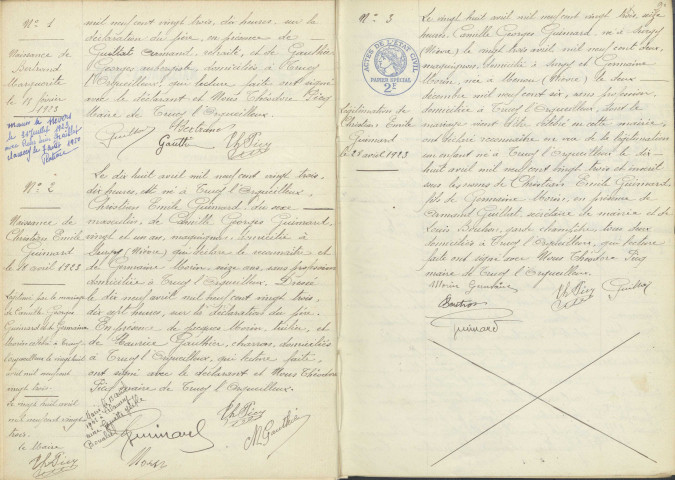 N° 1
Naissance de
Bertrand
Marguerite
le 18 février
1923
mil neuf cent vingt trois, dix heures, sur la
déclaration du père, en présence de
Guillat Armand, retraité, et de Gauthier
Georges aubergiste, domiciliés à Trucy
l'Orgueilleux, qui lecture faite ont signé
avec le déclarant et Nous Théodore Picq
Maire de Trucy l'Orgueilleux.
Guillat Bertrand
Gauth Th Picq
N° 2
Naissance de
Christian Emile
Guimard
le 18 avril 1923
Légitimé par le mariage
de Camille Georges
Guimard et de Germaine
Morin célébré à Trucy
l'Orgueilleux le vingt huit
avril mil neuf cent
vingt trois.
Le vingt huit avril
mil neuf cent vingt
trois.
Le Maire
Th Picq
Le dix huit avril mil neuf cent vingt trois,
dix heures, est né à Trucy l'Orgueilleux,
Christian Emile Guimard, du sexe
masculin, de Camille Georges Guimard,
vingt et un ans, maquignon, domicilié à
Surgy (Nièvre) qui déclare le reconnaître et
de Germaine Morin, seize ans, sans profession
domiciliée à Trucy l'Orgueilleux. Dressé
le dix neuf avril mil neuf cent vingt trois,
dix sept heures, sur la déclaration du père.
En présence de Jacques Morin, tuilier, et
de Maurice Gauthier, charron, domiciliés
à Trucy l'Orgueilleux, qui lecture faite,
ont signé avec le déclarant et Nous Théodore
Picq maire de Trucy l'Orgueilleux.
Guimard Th Picq
Morin M. Gauthier
N° 3
ACTES DE L'ÉTAT CIVIL
PAPIER SPÉCIAL
2F
Légitimation de
Christian Emile
Guimard
le 28 avril 1923
Le vingt huit avril mil neuf cent vingt trois, seize
heures, Camille Georges Guimard, né à Surgy
(Nièvre) le vingt trois avril mil neuf cent deux,
maquignon, domicilié à Surgy et Germaine
Morin, née à (Nièvre) le deux
décembre mil neuf cent six, sans profession,
domiciliée à Trucy l'Orgueilleux, dont le
mariage vient d'être célébré en cette mairie,
ont déclaré reconnaître en vue de la légitimation
un enfant né à Trucy l'Orgueilleux le dix
huit avril mil neuf cent vingt trois et inscrit
sous les noms de Christian Emile Guimard,
fils de Germaine Morin, en présence de
Armand Guillat, secrétaire de mairie et de
Louis garde champêtre, tous deux
domiciliés à Trucy l'Orgueilleux, qui lecture
faite ont signé avec Nous Théodore Picq
maire de Trucy l'Orgueilleux.
Morin Germaine Th Picq Guillat
Guimard